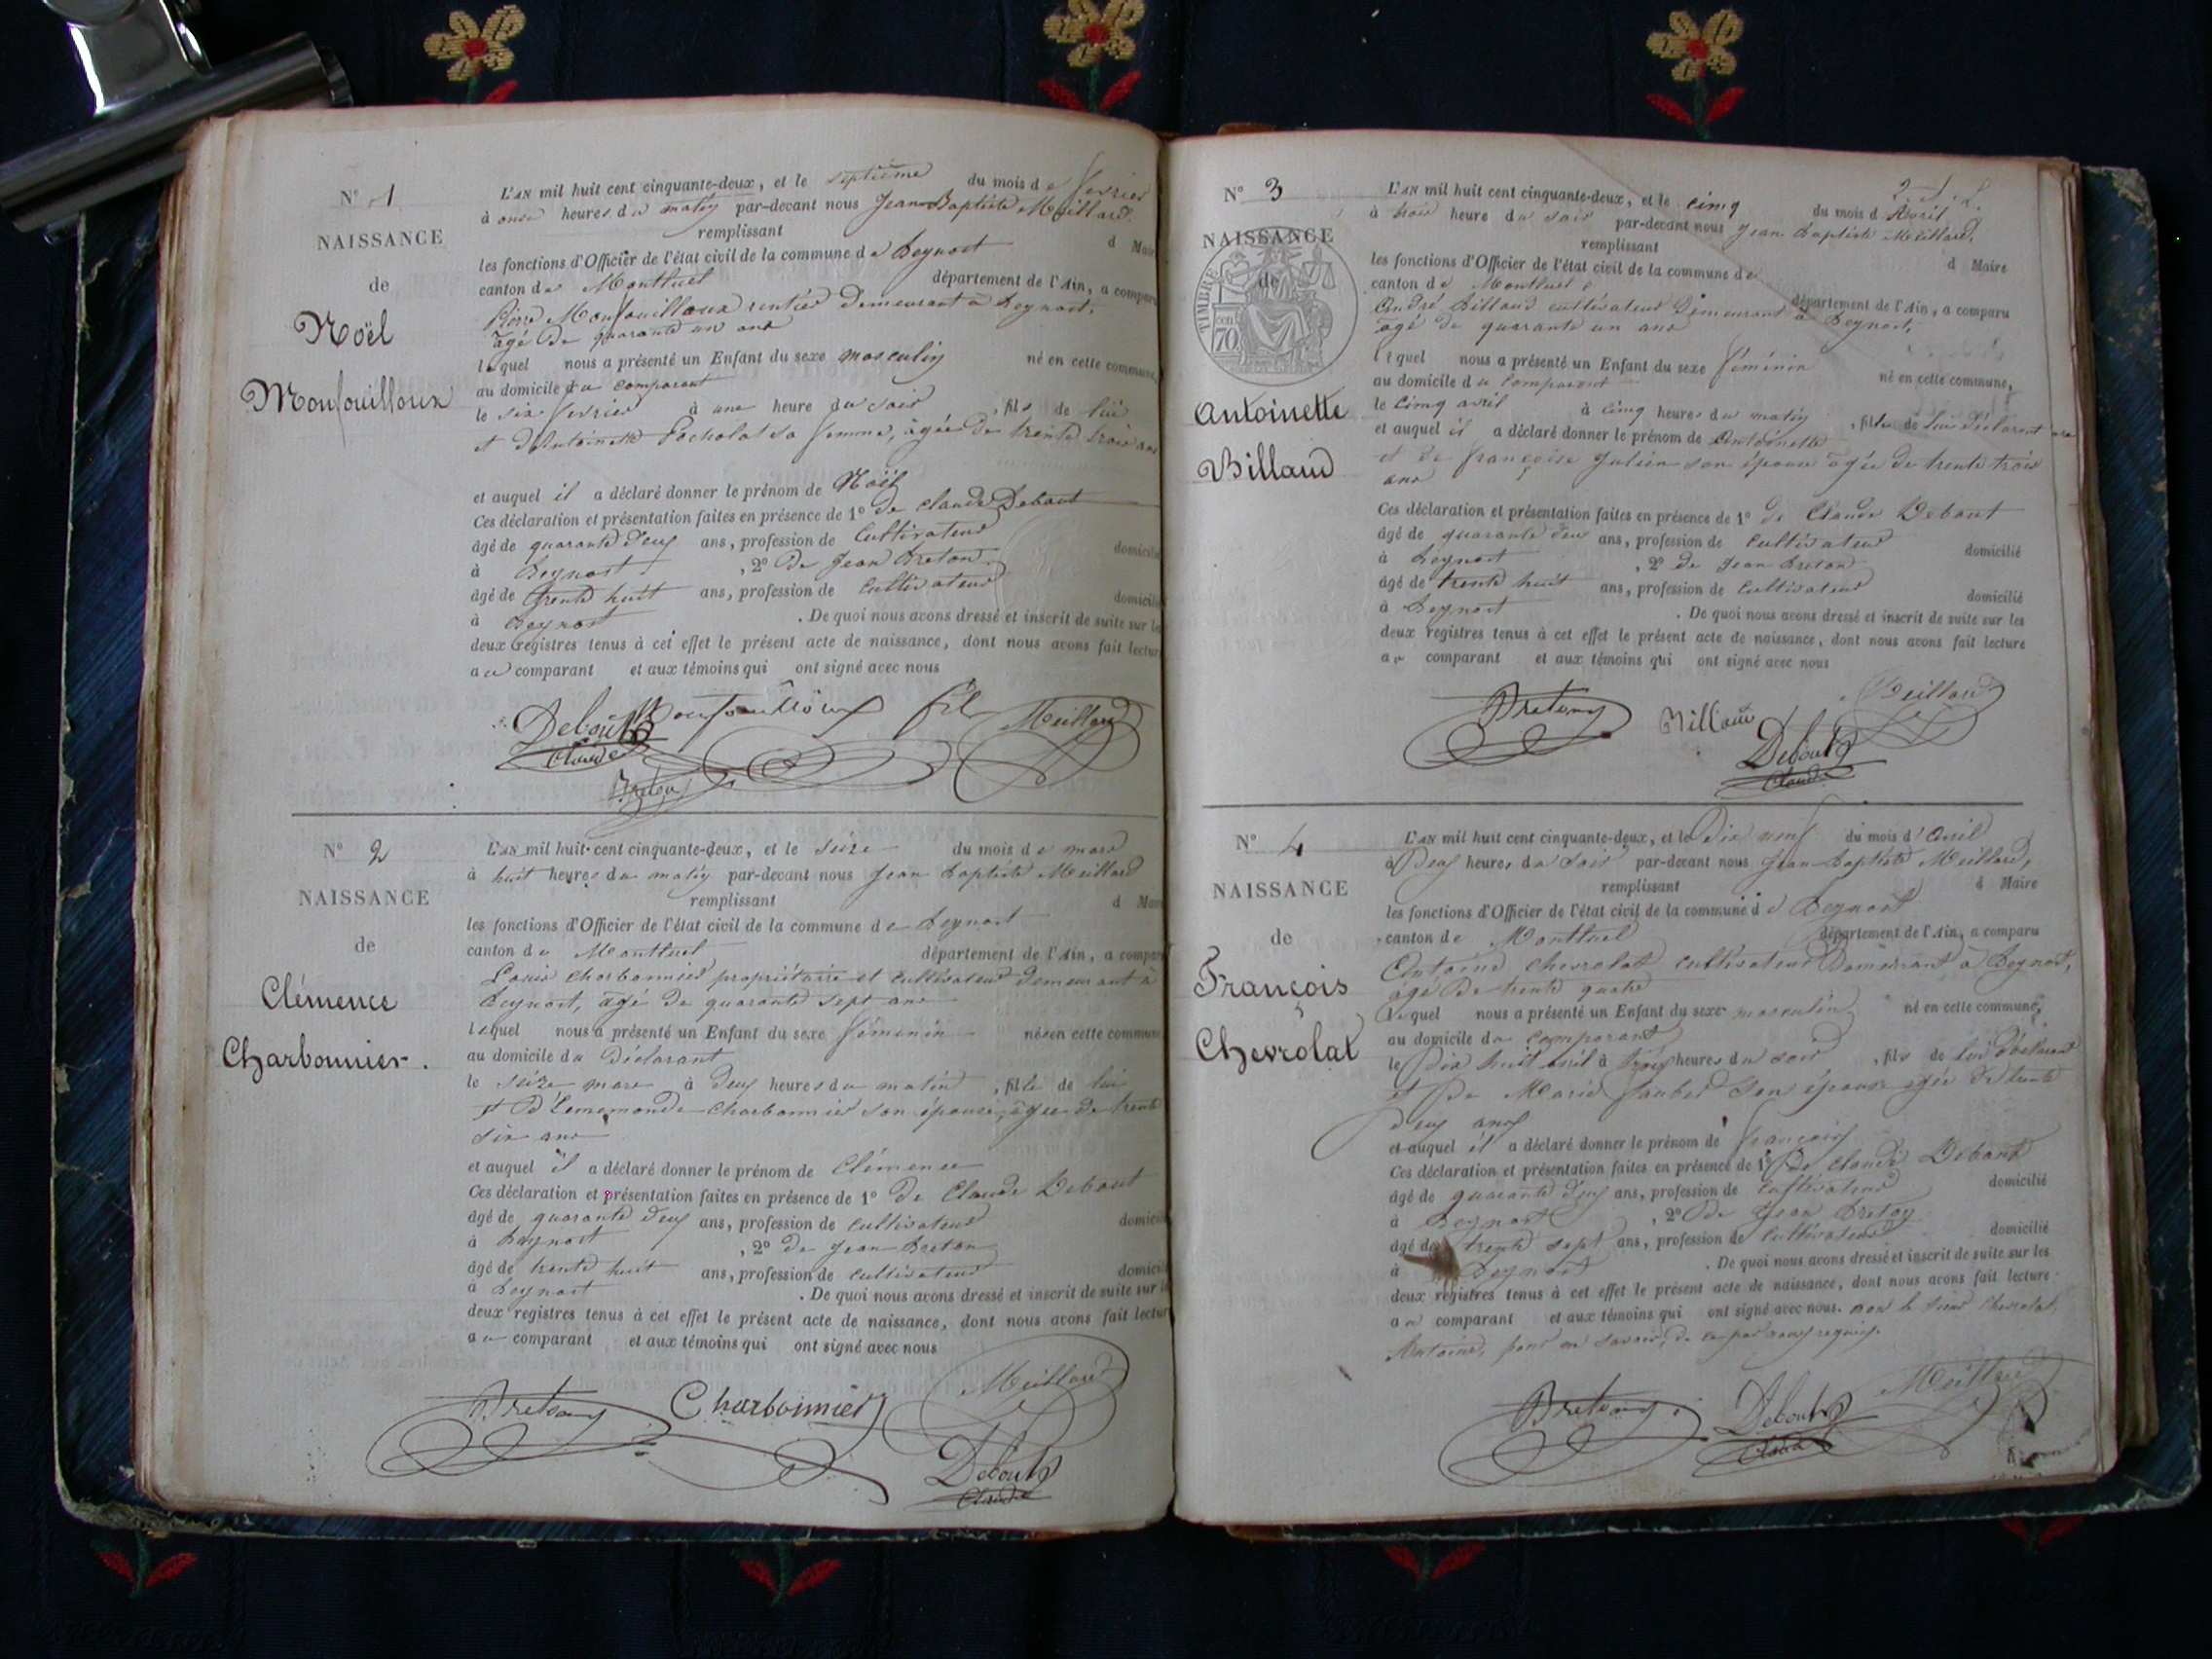 N° 1
NAISSANCE
de
Noël
Monfouilloux
L'AN mil huit cent cinquante-deux, et le septième du mois de fevrier
à onze heures du matin par-devant nous Jean-Baptiste Meillard
remplissant d Maire
les fonctions d'Officier de l'état civil de la commune de Beynost
canton de Montluel département de l'Ain, a comparu
Pierre Monfouilloux rentier demeurant à Beynost,
âgé de quarante un ans
lequel nous a présenté un Enfant du sexe masculin né en cette commune,
au domicile du comparant
le six fevrier à une heure du soir, fils de lui
et d'Antoinette Pocholat sa femme, âgée de trente trois ans
et auquel il a déclaré donner le prénom de Noël
Ces déclaration et présentation faites en présence de 1° de Claude Debout
âgé de quarante deux ans, profession de Cultivateur domicilié
à Beynost, 2° de Jean Breton
âgé de trente huit ans, profession de cultivateur domicilié
à Beynost. De quoi nous avons dressé et inscrit de suite sur les
deux registres tenus à cet effet le présent acte de naissance, dont nous avons fait lecture
au comparant et aux témoins qui ont signé avec nous
Debout Monfouilloux fils Meillard
Claude
Breton
N° 2
NAISSANCE
de
Clémence
Charbonnier.
L'AN mil huit cent cinquante-deux, et le seize du mois de mars
à huit heures du matin par-devant nous Jean Baptiste Meillard
remplissant d Maire
les fonctions d'Officier de l'état civil de la commune de Beynost
canton de Montluel département de l'Ain, a comparu
Louis Charbonnier propriétaire et cultivateur demeurant à
Beynost, âgé de quarante sept ans
lequel nous a présenté un Enfant du sexe féminin née en cette commune
au domicile du déclarant
le seize mars à deux heures du matin, fille de lui
et d'Ennemonde Charbonnier son épouse, âgée de trente
six ans
et auquel il a déclaré donner le prénom de Clémence
Ces déclaration et présentation faites en présence de 1° de Claude Debout
âgé de quarante deux ans, profession de cultivateur domicilié
à Beynost, 2° de Jean Breton
âgé de trente huit ans, profession de cultivateur domicilié
à Beynost. De quoi nous avons dressé et inscrit de suite sur les
deux registres tenus à cet effet le présent acte de naissance, dont nous avons fait lecture
au comparant et aux témoins qui ont signé avec nous
Breton Charbonnier Meillard
Debout
Claude
N° 3
NAISSANCE
de
TIMBRE
70
Antoinette
Billaud
L'AN mil huit cent cinquante-deux, et le cinq du mois d Avril
à trois heure du soir par-devant nous Jean Baptiste Meillard,
remplissant d Maire
les fonctions d'Officier de l'état civil de la commune de
canton de Montluel département de l'Ain, a comparu
André Billaud cultivateur demeurant à Beynost,
âgé de quarante un ans
lequel nous a présenté un Enfant du sexe féminin né en cette commune,
au domicile du comparant
le cinq avril à cinq heures du matin, fille de lui déclarant
et auquel il a déclaré donner le prénom de Antoinette
et de françoise Julien son épouse âgée de trente trois
ans
Ces déclaration et présentation faites en présence de 1° de Claude Debout
âgé de quarante deux ans, profession de cultivateur domicilié
à Beynost, 2° de Jean Breton
âgé de trente huit ans, profession de Cultivateur domicilié
à Beynost. De quoi nous avons dressé et inscrit de suite sur les
deux registres tenus à cet effet le présent acte de naissance, dont nous avons fait lecture
au comparant et aux témoins qui ont signé avec nous
Breton Billaud Meillard
Debout
Claude
N° 4
NAISSANCE
de
François
Chevrolat
L'AN mil huit cent cinquante-deux, et le Dix neuf du mois d'Avril
à Deux heures du soir par-devant nous Jean-Baptiste Meillard,
remplissant d Maire
les fonctions d'Officier de l'état civil de la commune de Beynost
canton de Montluel département de l'Ain, a comparu
Antoine Chevrolat cultivateur Demeurant à Beynost,
âgé de trente quatre
lequel nous a présenté un Enfant du sexe masculin né en cette commune,
au domicile du comparant
le Dix huit avril à trois heures du soir, fils de lui déclarant
et de Marie Jambet son épouse agée de trente
deux ans
et auquel il a déclaré donner le prénom de françois
Ces déclaration et présentation faites en présence de 1° de Claude Debout
âgé de quarante deux ans, profession de cultivateur domicilié
à Beynost, 2° de Jean Breton
âgé de trente sept ans, profession de cultivateur domicilié
à Beynost. De quoi nous avons dressé et inscrit de suite sur les
deux registres tenus à cet effet le présent acte de naissance, dont nous avons fait lecture
au comparant et aux témoins qui ont signé avec nous. non le sieur Chevrolat
Antoine, pour ne savoir, de ce par nous requis.
Breton Debout Meillard
Claude